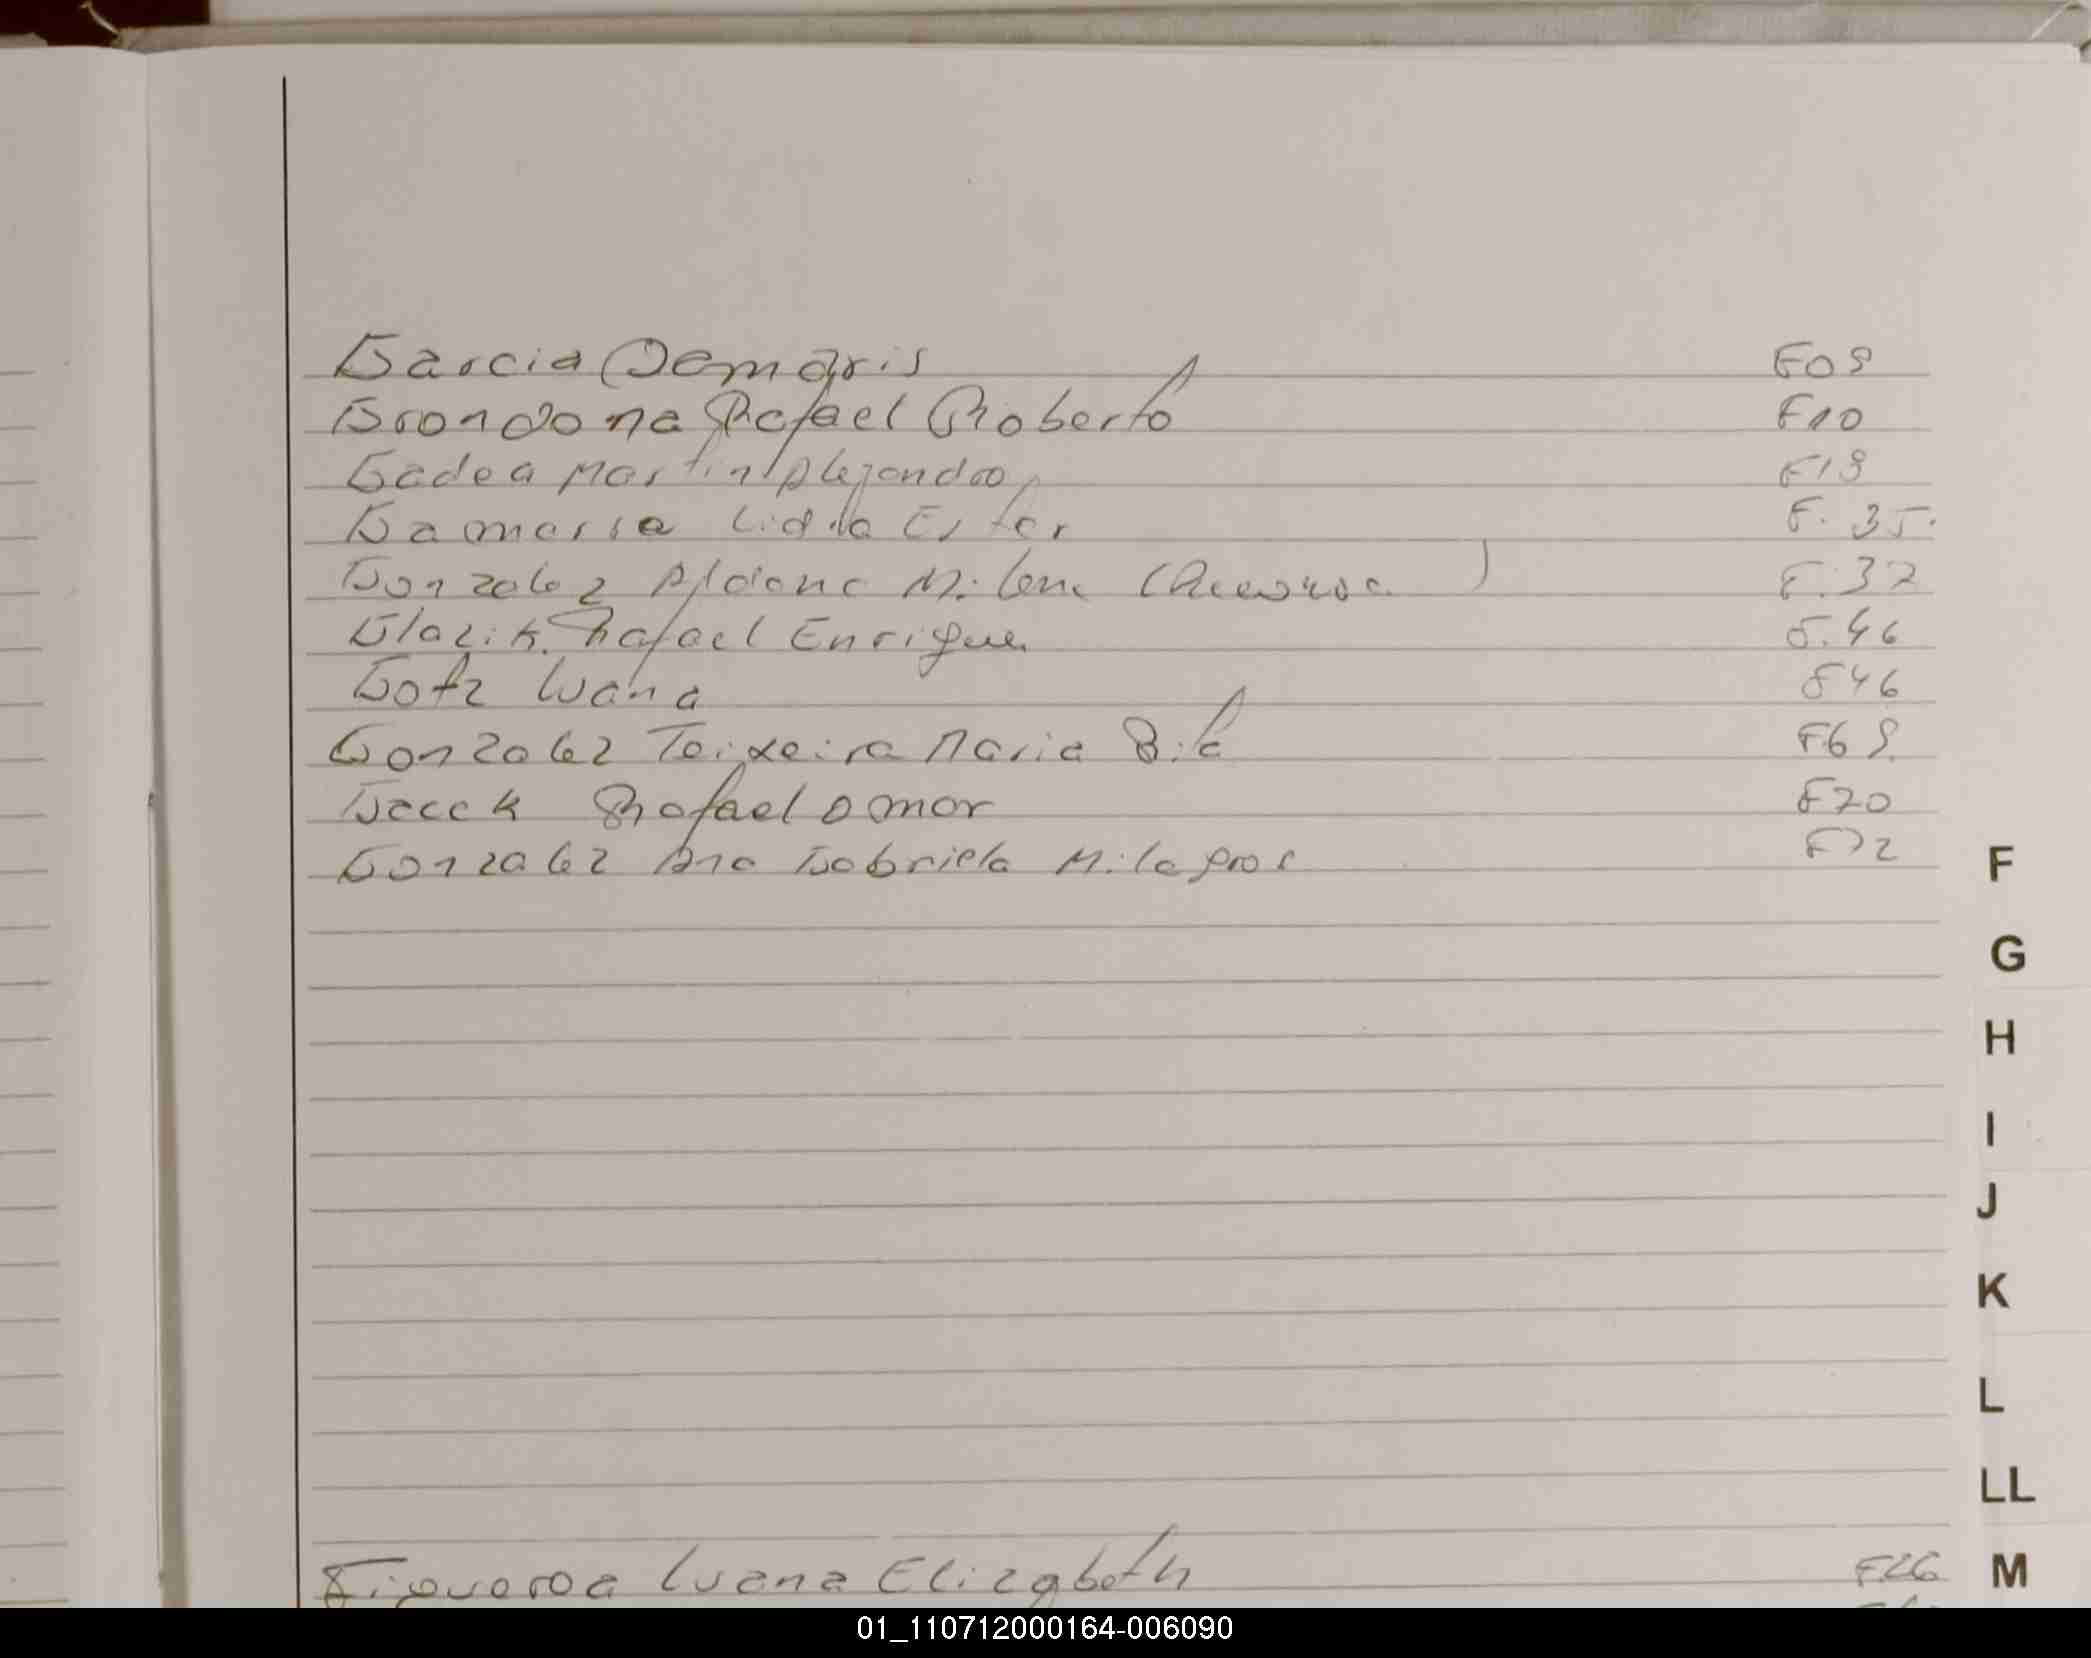 Garcia Demaris F09
Grondona Rafael Roberto F10
Gadea Martin Alejandro F19
Gamarra Lidia Ester F. 35.
Gonzalez Aldana Milena ( ) F.37
Glazik Rafael Enrique F.46
Gotz Luana F46
Gonzalez Teixeira Maria F69.
Geeck Rafael Omar F70
Gonzalez Ana Gabriela Milagros F72
F
G
H
I
J
K
L
LL
M
Figueroa Luana Elizabeth F26
01_110712000164-006090